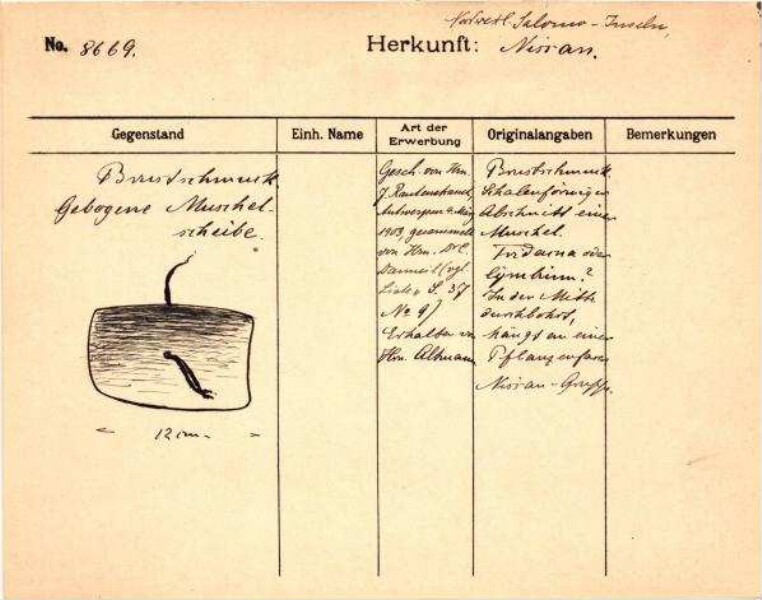 Nordwestl. Salomo-Inseln,
No. 8669.
Herkunft: Nissan.
Gegenstand
Einh. Name
Art der
Erwerbung
Originalangaben
Bemerkungen
Brustschmuck
Gebogene Muschel-
scheibe.
12 cm.
Gesch. von Hrn.
J. Rautenstrauch,
Antwerpen
1903, gesammelt
von Hrn.
(vgl.
Liste S. 37
No 9)
Erhalten von
Hrn. Altmann
Brustschmuck.
Schalenförmiger
Abschnitt einer
Muschel.
Tridacna oder
Cymbium?
In der Mitte
durchbohrt,
hängt an einer
Pflanzenfaser
Nissan-Gruppe.